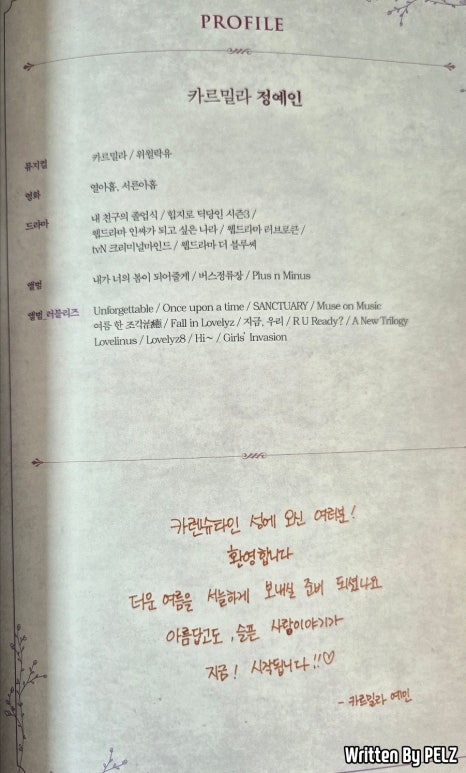 PROFILE
카르밀라 정예인
뮤지컬
카르밀라 / 위윌락유
영화
열아홉, 서른아홉
드라마
내 친구의 졸업식 / 힙지로 탁당인 시즌3 /
웹드라마 인싸가 되고 싶은 나라 / 웹드라마 러브로큰 /
tvN 크리미널마인드 / 웹드라마 더 블루씨
앨범
내가 너의 봄이 되어줄게 / 버스정류장 / Plus n Minus
앨범_러블리즈
Unforgettable / Once upon a time / SANCTUARY / Muse on Music
여름 한 조각治癒 / Fall in Lovelyz / 지금, 우리 / R U Ready? / A New Trilogy
Lovelinus / Lovelyz8 / Hi~ / Girls' Invasion
카렌슈타인 성에 오신 여러분!
환영합니다
더운 여름을 서늘하게 보내실 준비 되셨나요
아름답고도, 슬픈 사랑이야기가
지금! 시작됩니다!!♡
- 카르밀라 예인
Written By PELZ